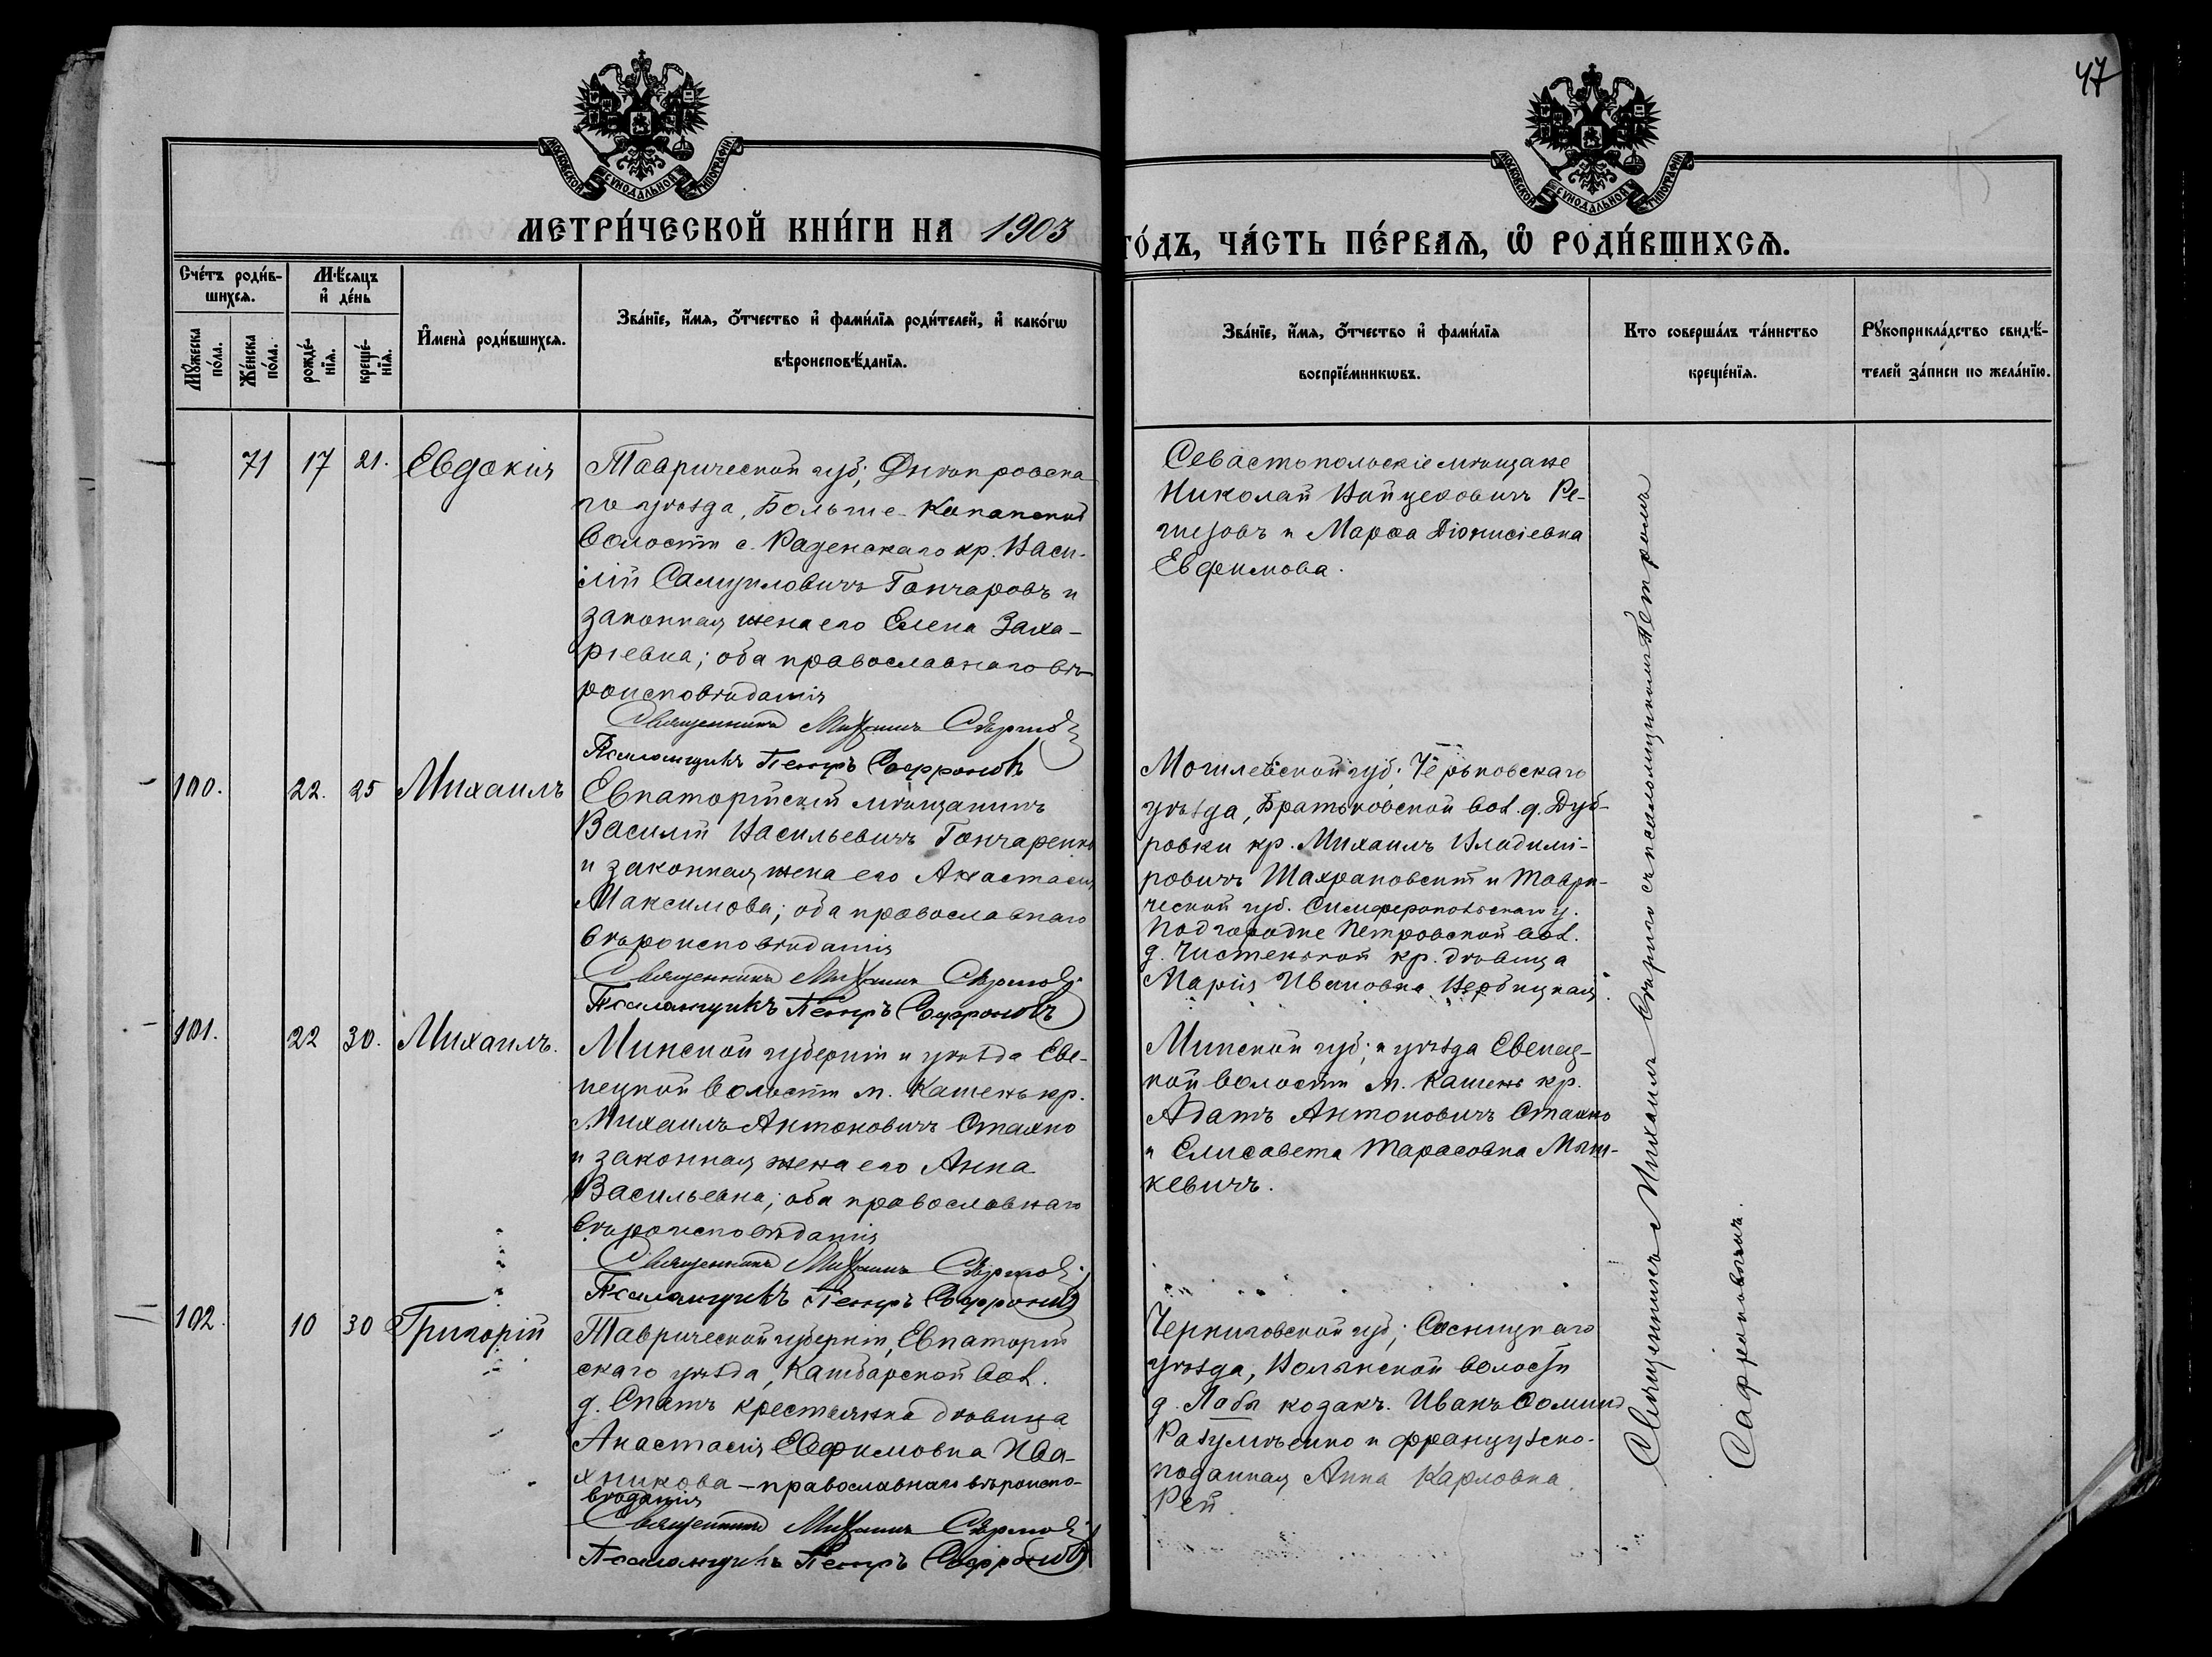 47
МОСКОВСКОЙ СѴНОДАЛЬНОЙ ТИПОГРАФІИ
МОСКОВСКОЙ СѴНОДАЛЬНОЙ ТИПОГРАФІИ
МЕТРИ́ЧЕСКОЙ КНИ́ГИ НА 1903
ГО́ДЪ, ЧА́СТЬ ПЕ́РВАЯ, Ѿ РОДИ́ВШИХСЯ.
Сче́тъ роди́в-
шихся.
Мꙋ́жеска по́ла.
Же́нска по́ла.
Мѣ́сяцъ
и҆ де́нь
рожде́-
нїя.
креще́-
нїя.
И҆мена̀ роди́вшихся.
Зва́нїе, и҆́мя, ѻ҆́тчество и҆ фами́лїя роди́телей, и҆ како́гѡ
вѣроисповѣ́данїя.
Зва́нїе, и҆́мя, ѻ҆́тчество и҆ фами́лїя
воспрїе́мникѡвъ.
Кто соверша́лъ та́инство
креще́нїя.
Рꙋкоприкла́дство свидѣ́-
телей за́писи по жела́нїю.
71 17 21. Евдокія
Таврической губ; Днѣпровска
го уѣзда, Больше-Копанской
волости с. Раденскаго кр. Васи-
лій Самуиловичъ Гончаровъ и
законная жена его Елена Заха-
ріевна; оба православнаго вѣ-
роисповѣданія
Священникъ Михаилъ
Псаломщикъ Петръ Софроновъ
Севастопольскіе мѣщане
Николай Ре-
и Марѳа Діонисіевна
Евфимова.
100. 22. 25 Михаилъ
Евпаторійскій мѣщанинъ
Василій Васильевичъ Гончаренко
и законная жена его Анастасія
Максимова; оба православнаго
вѣроисповѣданія
Священникъ Михаилъ
Псаломщикъ Петръ Софроновъ
Могилевской губ.
уѣзда, Братьковской вол. д. Дуб-
ровки кр. Михаилъ Владимі-
ровичъ и Таври-
ческой губ. Симферопольскаго у.
Подгородне Петровской вол.
д. Чистенькой кр. дѣвица
Марія Ивановна Вербицкая.
101. 22 30. Михаилъ.
Минской губерніи и уѣзда Све-
пецкой волости м. Камень кр.
Михаилъ Антоновичъ Стахно
и законная жена его Анна
Васильевна; оба православнаго
вѣроисповѣданія
Священникъ Михаилъ
Псаломщикъ Петръ Софроновъ
Минской губ; и уѣзда
кой волости м. Камень кр.
Адамъ Антоновичъ Стахно
и Елисавета Тарасовна Мыш-
кевичъ.
102. 10 30 Григорій
Таврической губерніи, Евпаторій
скаго уѣзда, Камбарской вол.
д. Спатъ крестьянка дѣвица
Анастасія Евфимовна Ива-
хникова – православнаго вѣроиспо-
вѣданія
Священникъ Михаилъ
Псаломщикъ Петръ Софроновъ
Черниговской губ; Сосницкаго
уѣзда, Волынской волости
д. Лавы козакъ. Иванъ
и французско-
подданная Анна Карловна
Рей.
Священникъ Михаилъ съ псаломщикомъ Петромъ
Софроновымъ.